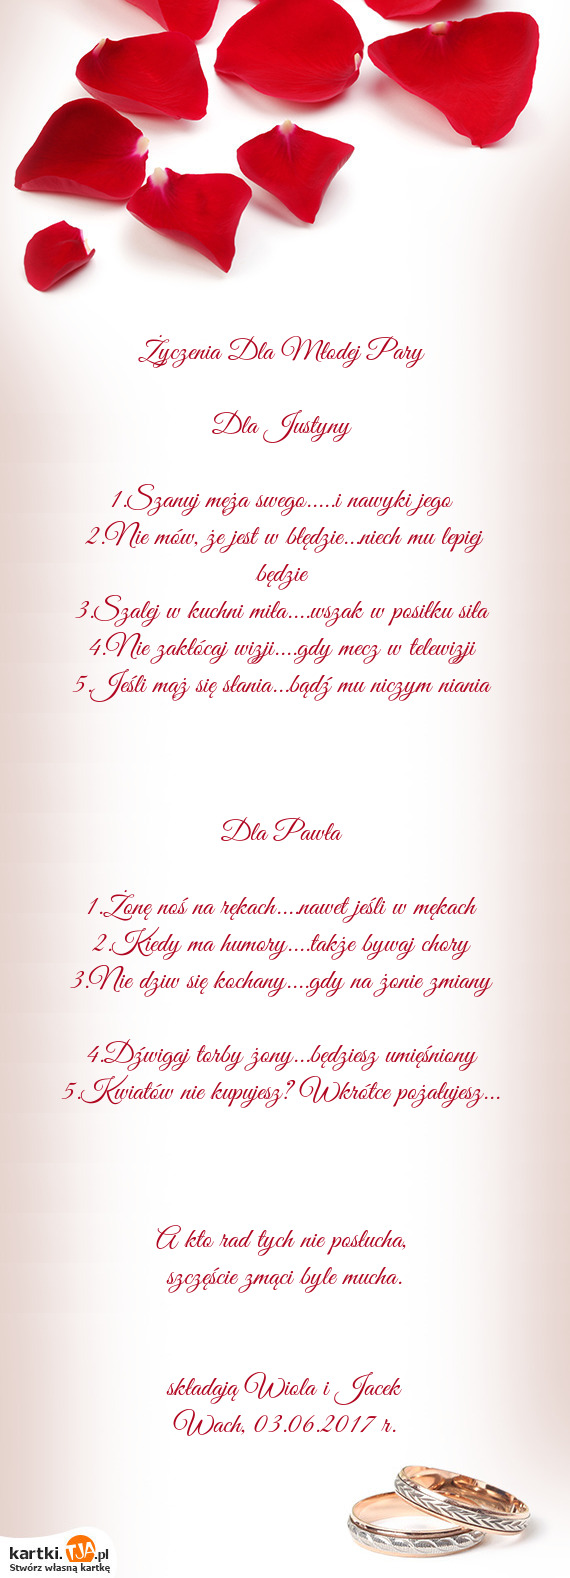 Życzenia Dla Młodej Pary
Dla Justyny
1.Szanuj męża swego.....i nawyki jego
2.Nie mów, że jest w błędzie...niech mu lepiej
będzie
3.Szalej w kuchni miła....wszak w posiłku siła
4.Nie zakłócaj wizji....gdy mecz w telewizji
5.Jeśli mąż się słania...bądź mu niczym niania
Dla Pawła
1.Żonę noś na rękach....nawet jeśli w mękach
2.Kiedy ma humory....także bywaj chory
3.Nie dziw się kochany....gdy na żonie zmiany
4.Dźwigaj torby żony...będziesz umięśniony
5.Kwiatów nie kupujesz? Wkrótce pożałujesz...
A kto rad tych nie posłucha,
szczęście zmąci byle mucha.
składają Wiola i Jacek
Wach, 03.06.2017 r.
kartki.TJA.pl
Stwórz własną kartkę